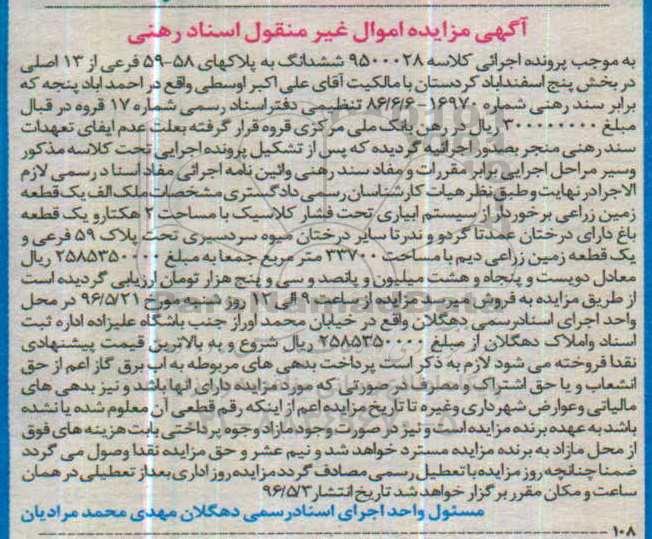 آگهی مزایده اموال غیر منقول اسناد رهنی
به موجب پرونده اجرائی کلاسه ۹۵۰۰۰۲۸ ششدانگ به پلاکهای ۵۸-۵۹ فرعی از ۱۳ اصلی
در بخش پنج اسفنداباد کردستان با مالکیت آقای علی اکبر اوسطی واقع در احمد اباد پنجه که
برابر سند رهنی شماره ۱۶۹۷۰-۸۶/۶/۶ تنظیمی دفتر اسناد رسمی شماره ۱۷ قروه در قبال
مبلغ ۳۰۰۰۰۰۰۰۰ ریال در رهن بانک ملی مرکزی قروه قرار گرفته بعلت عدم ایفای تعهدات
سند رهنی منجر بصدور اجرائیه گردیده که پس از تشکیل پرونده اجرایی تحت کلاسه مذکور
وسیر مراحل اجرایی برابر مقررات و مفاد سند رهنی وائین نامه اجرائی مفاد اسناد رسمی لازم
الاجرا در نهایت و طبق نظر هیات کارشناسان رسمی دادگستری مشخصات ملک الف یک قطعه
زمین زراعی برخوردار از سیستم ابیاری تحت فشار کلاسیک با مساحت ۲ هکتار و یک قطعه
باغ دارای درختان عمدتا گردو و ندرتا سایر درختان میوه سردسیری تحت پلاک ۵۹ فرعی و
یک قطعه زمین زراعی دیم با مساحت ۳۳۷۰۰ متر مربع جمعا به مبلغ ۲۵۸۵۳۵۰۰۰۰ ریال
معادل دویست و پنجاه و هشت میلیون و پانصد و سی و پنج هزار تومان ارزیابی گردیده است
از طریق مزایده به فروش میرسد مزایده از ساعت ۹ الی ۱۲ روز شنبه مورخ ۹۶/۵/۲۱ در محل
واحد اجرای اسناد رسمی دهگلان واقع در خیابان محمد اوراز جنب باشگاه علیزاده اداره ثبت
اسناد واملاک دهگلان از مبلغ ۲۵۸۵۳۵۰۰۰۰ ریال شروع و به بالاترین قیمت پیشنهادی
نقدا فروخته می شود لازم به ذکر است پرداخت بدهی های مربوطه به اب برق گاز اعم از حق
انشعاب و یا حق اشتراک و مصارف در صورتی که مورد مزایده دارای انها باشد و نیز بدهی های
مالیاتی و عوارض شهرداری وغیره تا تاریخ مزایده اعم از اینکه رقم قطعی آن معلوم شده یا نشده
باشد به عهده برنده مزایده است و نیز در صورت وجود مازاد وجوه پرداختی بابت هزینه های فوق
از محل مازاد به برنده مزایده مسترد خواهد شد و نیم عشر و حق مزایده نقدا وصول می گردد
ضمنا چنانچه روز مزایده با تعطیل رسمی مصادف گردد مزایده روز اداری بعد از تعطیلی در همان
ساعت و مکان مقرر برگزار خواهد شد تاریخ انتشار ۹۶/۵/۳
مسئول واحد اجرای اسناد رسمی دهگلان مهدی محمد مرادیان
۱۰۸